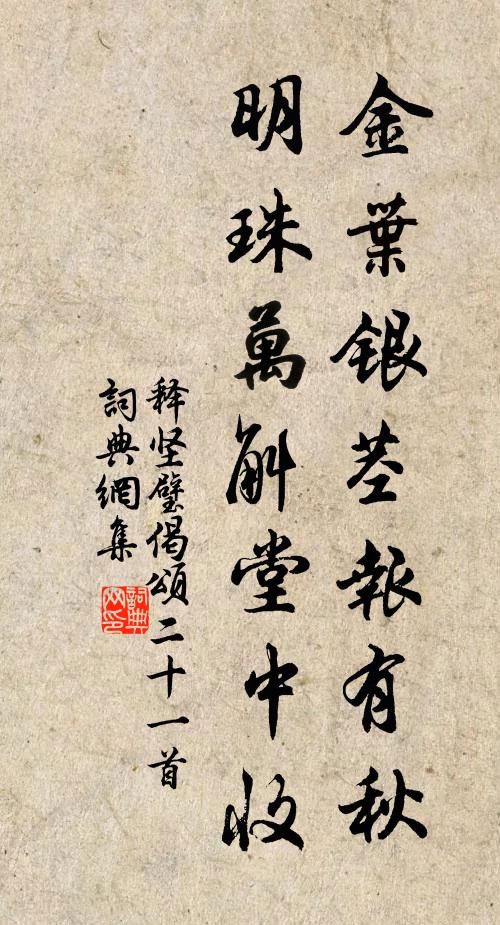 金葉銀茎報有秋
明珠萬斛堂中收
释坚璧偈頌二十一首
詞典網集
詞典
网印